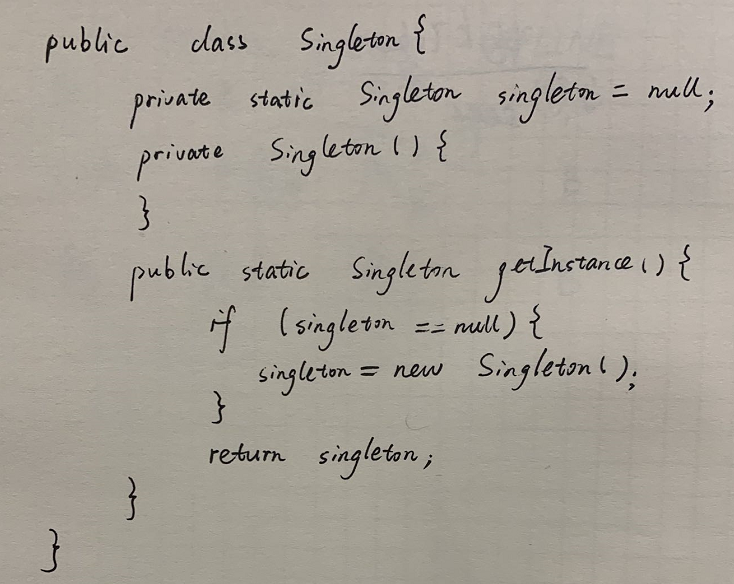 public class Singleton {
private static Singleton singleton = null;
private Singleton () {
}
public static Singleton getInstance () {
if (singleton == null) {
singleton = new Singleton ();
}
return singleton;
}
}